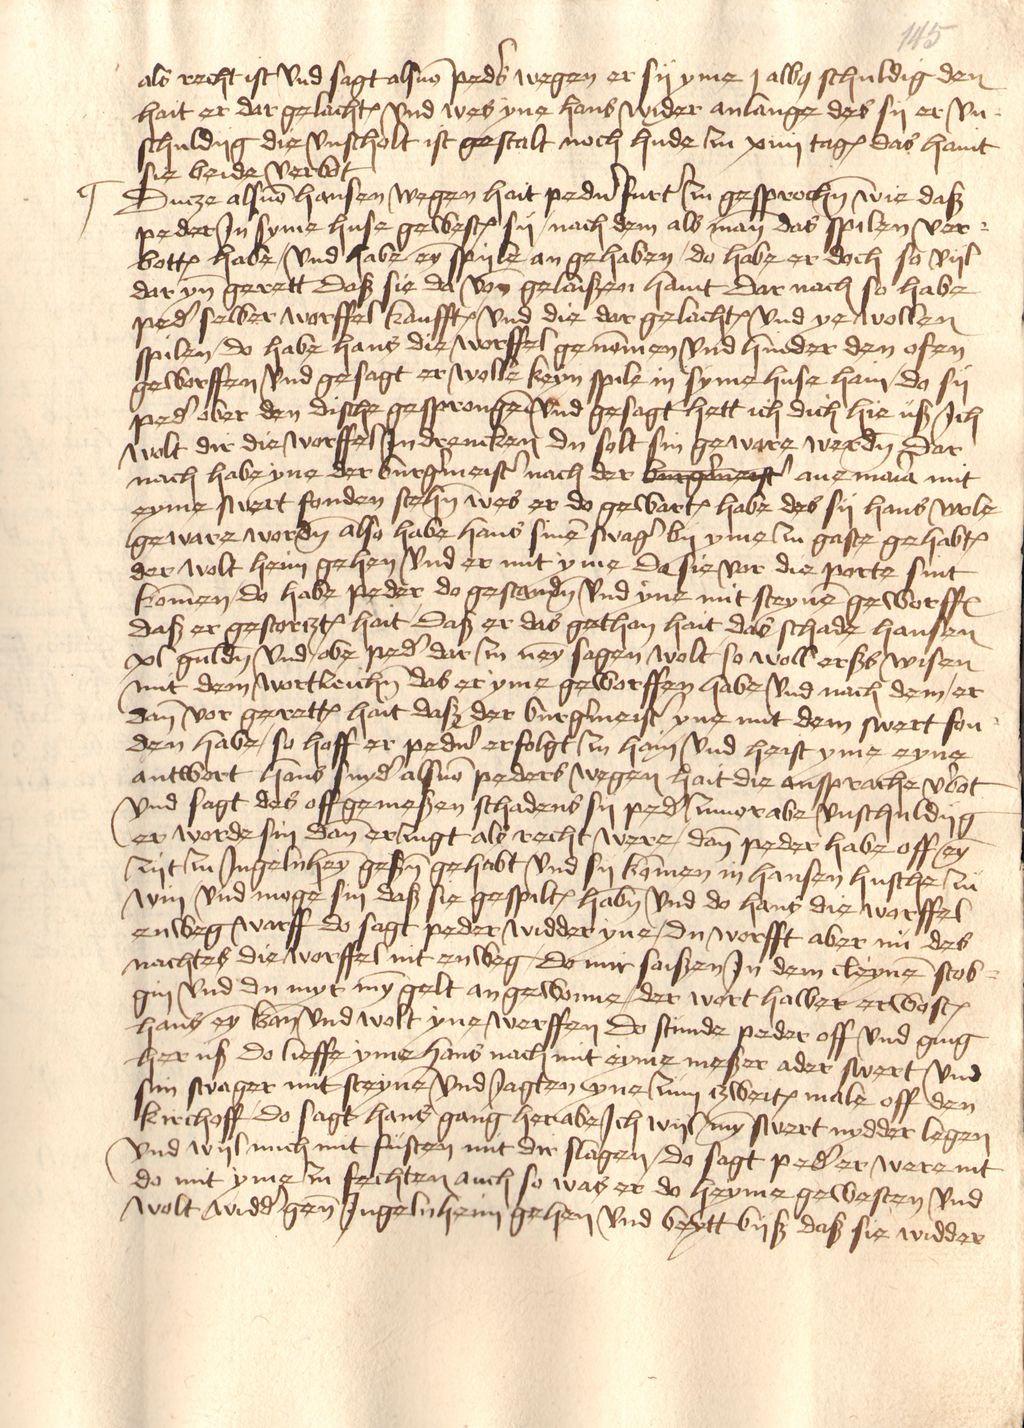 145
als recht ist vnd sagt alsuo peders wegen er sij yme j alb9 schuldig den
hait er dar gelacht vnd wes yne hans wider anlange des sij er vn-
schuldijg die vnscholt ist gestalt noch hude zu xiiij tag das haint
sie beide verbot
Rucze alsuo hansen wegen hait pedern furt zu gesprochin wie daß
peder In syme huse gewest sij / nach dem als man das spilen ver-
bott habe / vnd habe ey spyle an gehaben / do habe er doch so vijl
dar yn gerett daß sie da von gelaißen haint dar nach so habe
peder selber worffel kaufft vnd die dar gelacht vnd ye wollen
spilen / do habe hans die worffel genomen vnd hinder den ofen
geworffen vnd gesagt er wolle keyn spile in syme huse hain do sij
peder ober den dische gesprongen vnd gesagt hett ich dich hie uß Ich
wolt dir die worffel In drencken du solt sin geware werdn Dar
nach habe yne der burgermeister nach der burgermeister aue maria mit
eyme swert fonden stehn wes er do gewart habe des sij hans wole
geware wordn also habe hans sine swager bij yme zu gaste gehabt
der wolt heim gehen vnd er mit yme Da sie vor die porte sint
komen / do habe peder do gestandn vnd yne mit steyne geworff
daß er gestorczt hait Daß er das gethan hait das schade hansen
xl guldn vnd obe peder dar zu ney sagen wolt so woll erßs wisen
mit dem wortzeichn das er yme geworffen habe vnd nach dem / er
dan vor gerett hait daß der burgermeister yne mit dem swert fon-
den habe / so hoff er pedern erfolgt zu hain vnd heist yme eyne
antwort hans snyder alsuo peders wegen hait die ansprache vbot
vnd sagt des offgemeßen schadens sij peder zumorabe vnschuldijg
er worde sin dan erzugt als recht were / dan peder habe off / ey
zijt zu Ingelnheym geßn gehabt vnd sij komen in hansen husche zu
win vnd moge sin daß sie gespilt habn vnd do hans die worffel
enweg warff do sagt peder widder yne / du worfft aber nu des
nachtes die worffel nit enweg do mir saißen In dem cleyne stob-
gin vnd du myr myn gelt angewonne / der wort halber erwost
hans ey kan vnd wolt yne werffen do stunde peder off vnd ging
her uß do lieffe yme hans nach mit eyme meßer ader swert vnd
sin swager mit steyne vnd Jagten yne zum czweit male off den
kirchoff / do sagt hans gang herabe Ich wijl myn swert nydder legen
vnd wijl mich mit fusten mit dir slagen / do sagt peder er were nit
do mit yme zu fechten auch so was er do heyme gewesten vnd
wolt widder gen Ingelnheim gehen vnd beytt bijß daß sie widder